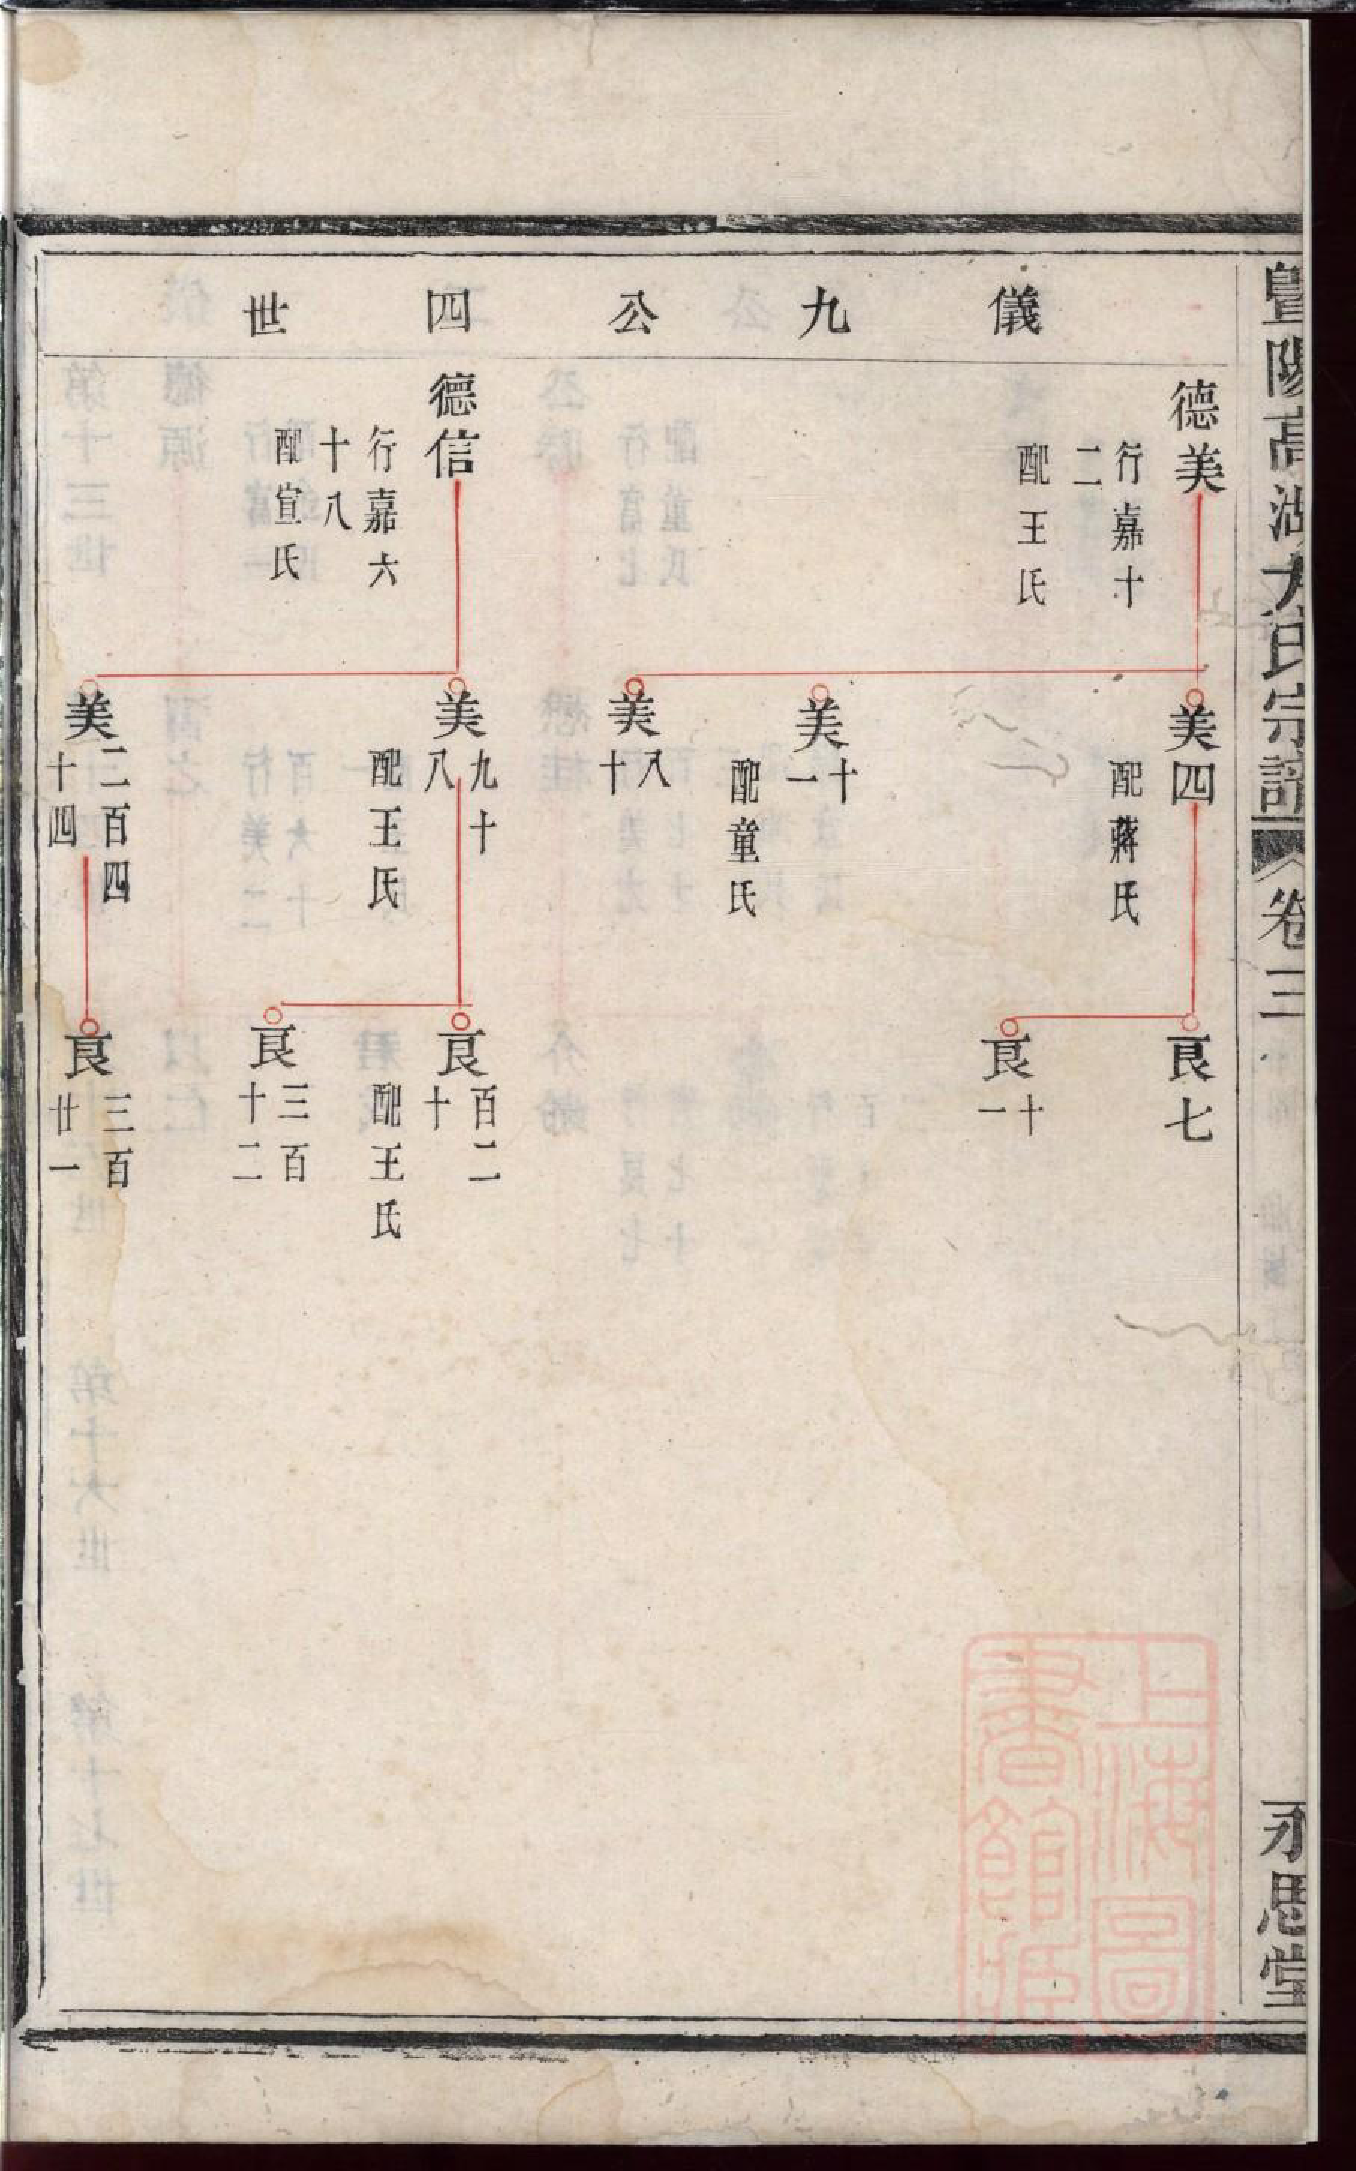 暨陽高湖方氏宗譜
卷三
永思堂
儀九公四世
德美
行嘉十
二
配王氏
德信
行嘉六
十八
配宣氏
美四
配蔣氏
美十一
配童氏
美八十
美九十八
配王氏
美二百四十四
良七
良十一
良百二十
配王氏
良三百十二
良三百廿一
上海圖書館藏